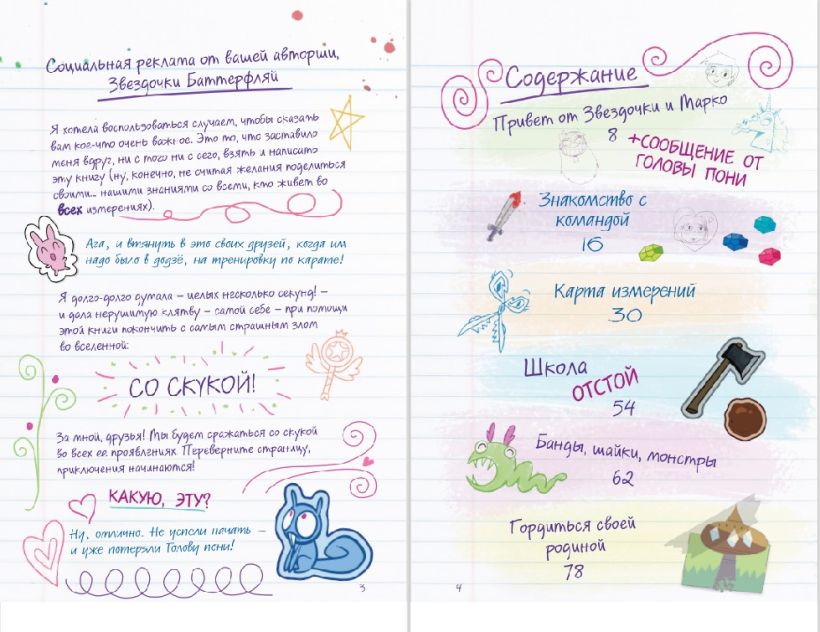 Социальная реклама от вашей авторши,
Звездочки Баттерфляй
Я хотела воспользоваться случаем, чтобы сказать
вам кое-что очень важное. Это то, что заставило
меня вдруг, ни с того ни с сего, взять и написать
эту книгу (ну, конечно, не считая желания поделиться
своими... нашими знаниями со всеми, кто живет во
всех измерениях).
Ага, и втянуть в это своих друзей, когда им
надо было в додзё, на тренировку по карате!
Я долго-долго думала – целых несколько секунд! –
и дала нерушимую клятву – самой себе – при помощи
этой книги покончить с самым страшным злом
во вселенной:
СО СКУКОЙ!
За мной, друзья! Мы будем сражаться со скукой
во всех ее проявлениях. Переверните страницу,
приключения начинаются!
КАКУЮ, ЭТУ?
Ну, отлично. Не успели начать –
и уже потеряли Голову пони!
3
Содержание
Привет от Звездочки и Марко
8
+СООБЩЕНИЕ ОТ
ГОЛОВЫ ПОНИ
Знакомство с
командой
16
Карта измерений
30
Школа
ОТСТОЙ
54
Банды, шайки, монстры
62
Гордиться своей
родиной
78
4